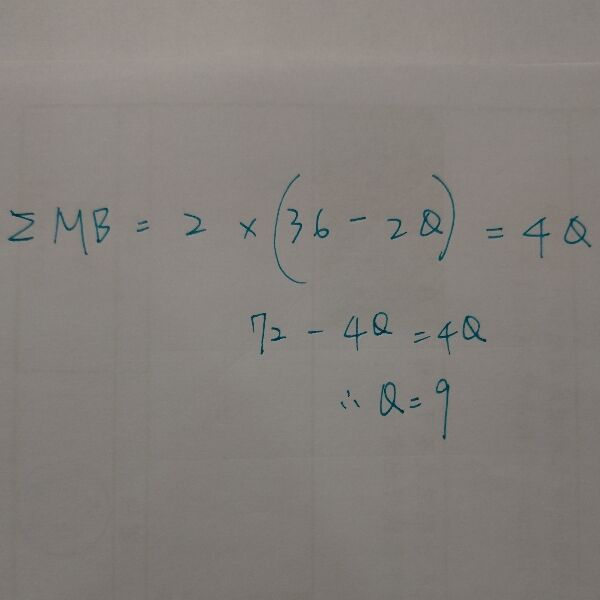 Σ MB = 2 × (36 - 2Q) = 4Q
72 - 4Q = 4Q
∴ Q = 9